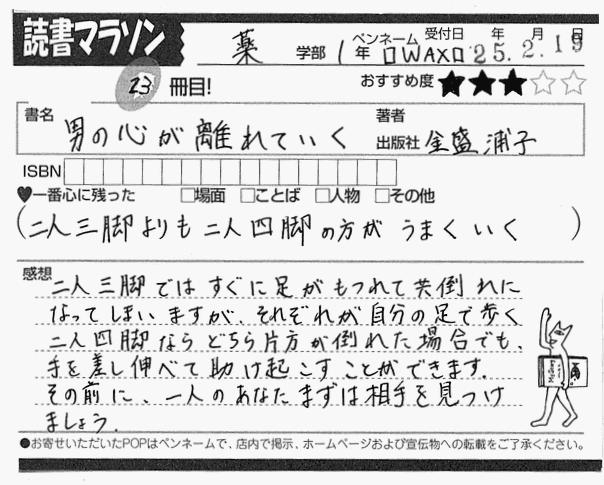 読書マラソン
薬 学部 1年 ペンネーム □WAX□ 受付日 25.2.19 年 月 日
23 冊目! おすすめ度 ★★★☆☆
書名 男の心が離れていく 著者 出版社 金盛浦子
ISBN
♥一番心に残った □場面 □ことば □人物 □その他
(二人三脚よりも二人四脚の方が うまくいく )
感想 二人三脚ではすぐに足がもつれて共倒れに
なってしまいますが、それぞれが自分の足で歩く
二人四脚ならどちら片方が倒れた場合でも、
手を差し伸べて助け起こすことができます。
その前に、一人のあなたまずは相手を見つけ
ましょう.
●お寄せいただいたPOPはペンネームで、店内で掲示、ホームページおよび宣伝物への転載をご了承ください。